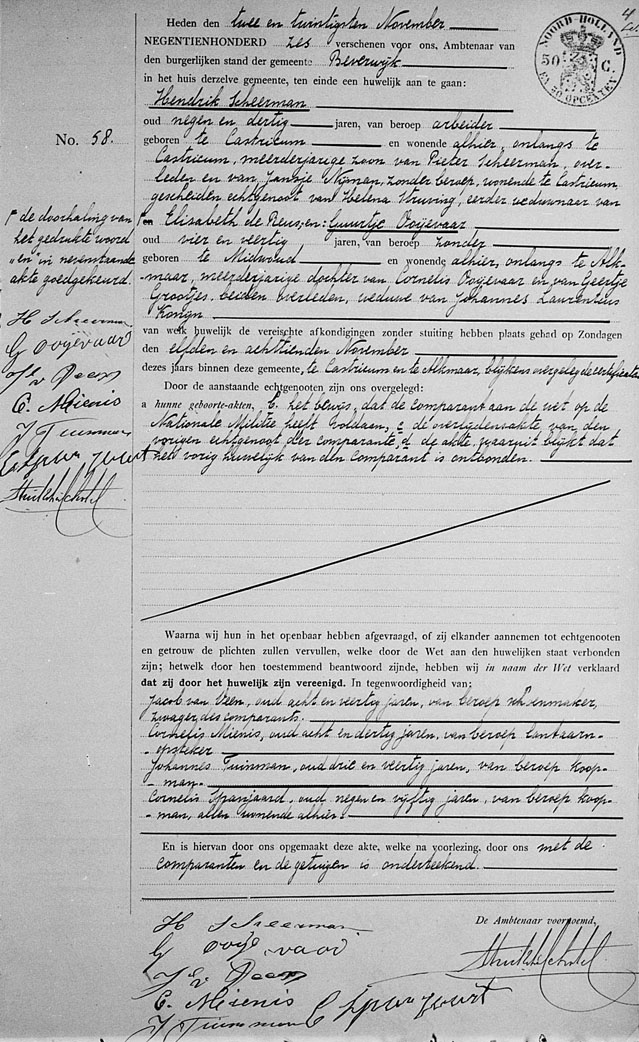 Heden den twee en twintigsten November
NEGENTIENHONDERD zes verschenen voor ons, Ambtenaar van
den burgerlijken stand der gemeente Beverwijk
in het huis derzelve gemeente, ten einde een huwelijk aan te gaan:
Hendrik Scheerman
oud negen en dertig jaren, van beroep arbeider
geboren te Castricum en wonende alhier, onlangs te
Castricum, meerderjarige zoon van Pieter Scheerman, over-
leden en van Jansje Nijman, zonder beroep, wonende te Castricum
gescheiden echtgenoot van Helena Vruving, eerder weduwnaar van
en Elisabeth de Reus, en: Guurtje Ooijevaar
oud vier en veertig jaren, van beroep zonder
geboren te Midwoud en wonende alhier, onlangs te Alk-
maar, meerderjarige dochter van Cornelis Ooijevaar en van Geertje
Grootjes, beiden overleden, weduwe van Johannes Laurentius
Konijn
van welk huwelijk de vereischte afkondigingen zonder stuiting hebben plaats gehad op Zondagen
den elfden en achttienden November
dezes jaars binnen deze gemeente, te Castricum en te Alkmaar, blijkens overgelegde certificaten
Door de aanstaande echtgenooten zijn ons overgelegd:
a hunne geboorte-akten, b. het bewijs, dat de comparant aan de wet op de
Nationale Militie heeft voldaan, c de overlijdensakte van den
vorigen echtgenoot der comparante, d de akte, waaruit blijkt dat
het vorig huwelijk van den comparant is ontbonden.
No. 58.
de doorhaling van
het gedrukte woord
„en" in nevenstaande
akte goedgekeurd.
H Scheerman
G Ooijevaar
J v Veen
C. Mienis
J Tuinman
C Spanjaard
NOORD-HOLLAND
50 C.
EN 38 OPCENTEN
Waarna wij hun in het openbaar hebben afgevraagd, of zij elkander aannemen tot echtgenooten
en getrouw de plichten zullen vervullen, welke door de Wet aan den huwelijken staat verbonden
zijn; hetwelk door hen toestemmend beantwoord zijnde, hebben wij in naam der Wet verklaard
dat zij door het huwelijk zijn vereenigd. In tegenwoordigheid van:
Jacob van Veen, oud acht en veertig jaren, van beroep schoenmaker,
zwager des comparants.
Cornelis Mienis, oud acht en dertig jaren, van beroep lantaarn-
-opsteker
Johannes Tuinman, oud drie en veertig jaren, van beroep koop-
-man.
Cornelis Spanjaard, oud negen en vijftig jaren, van beroep koop-
-man, allen wonende alhier.
En is hiervan door ons opgemaakt deze akte, welke na voorlezing, door ons met de
comparanten en de getuigen is onderteekend.
De Ambtenaar voornoemd,
H Scheerman
G Ooijevaar
J v Veen
C. Mienis
C Spanjaard
J Tuinman